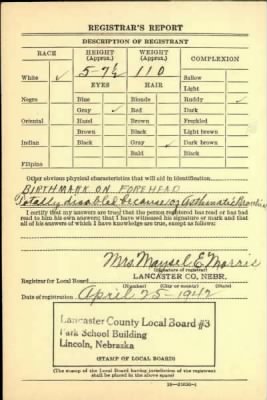 REGISTRAR'S REPORT
DESCRIPTION OF REGISTRANT
RACE HEIGHT (Approx.) WEIGHT (Approx.) COMPLEXION
White ✓ 5-7½ 110 Sallow
EYES HAIR Light
Negro Blue Blonde Ruddy ✓
Gray ✓ Red Dark
Oriental Hazel Brown Freckled
Brown Black Light brown
Indian Black Gray ✓ Dark brown
Bald Black
Filipino
Other obvious physical characteristics that will aid in identification
BIRTHMARK ON FOREHEAD
Totally disabled because of Asthmatic
I certify that my answers are true; that the person registered has read or has had
read to him his own answers; that I have witnessed his signature or mark and that
all of his answers of which I have knowledge are true, except as follows:
Mrs. E. Morris
(Signature of registrar)
Registrar for Local Board LANCASTER CO, NEBR.
(Number) (City or county) (State)
Date of registration April 25-1942
Lancaster County Local Board #3
Park School Building
Lincoln, Nebraska
(STAMP OF LOCAL BOARD)
(The stamp of the Local Board having jurisdiction of the registrant
shall be placed in the above space)